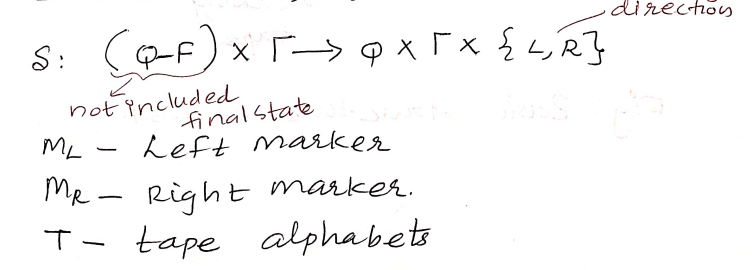 direction
S: (Q-F) × Γ → Q × Γ × {L, R}
not included
final state
ML - Left marker
MR - Right marker.
T - tape alphabets